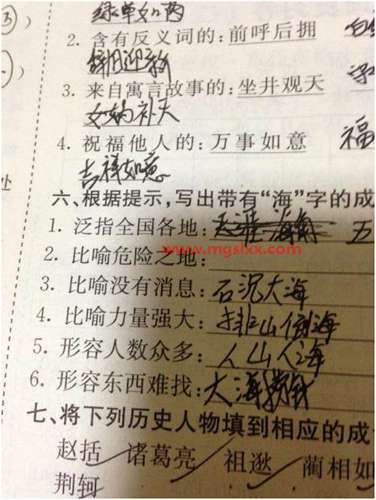 2. 含有反义词的：前呼后拥
辞旧迎新
3. 来自寓言故事的：坐井观天
女娲补天
4. 祝福他人的：万事如意 福
吉祥如意
六、根据提示，写出带有“海”字的成
1. 泛指全国各地： 五
www.mgslxx.com
2. 比喻危险之地：
3. 比喻没有消息：石沉大海
4. 比喻力量强大：排山倒海
5. 形容人数众多：人山人海
6. 形容东西难找：大海捞针
七、将下列历史人物填到相应的成
赵括 诸葛亮 祖逖 蔺相如
荆轲